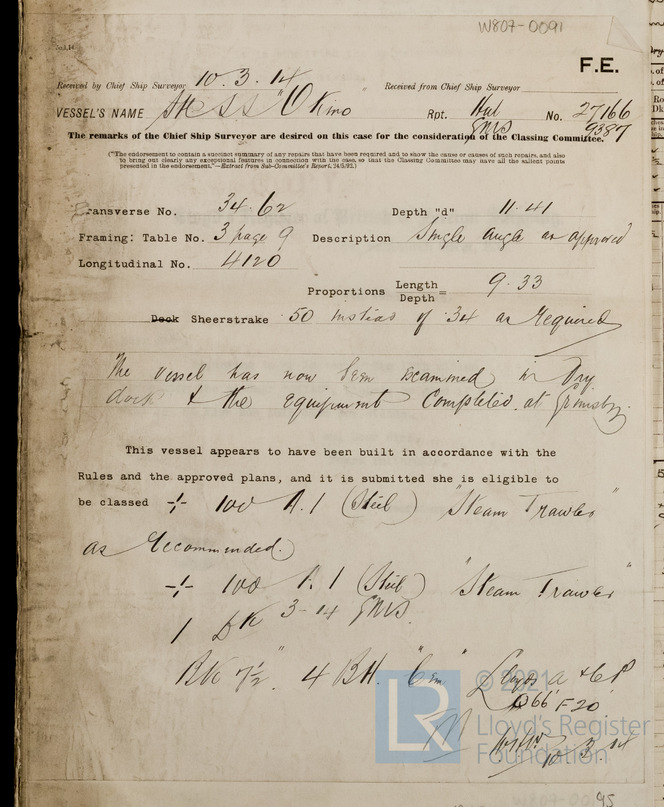 W807-0091
F.E.
Received by Chief Ship Surveyor 10.3.14 Received from Chief Ship Surveyor
VESSEL'S NAME SS "Okino Rpt. Hul No. 27166
Gms 9387
The remarks of the Chief Ship Surveyor are desired on this case for the consideration of the Classing Committee.
("The endorsement to contain a succinct summary of any repairs that have been required and to show the cause or causes of such repairs, and also
to bring out clearly any exceptional features in connection with the case, so that the Classing Committee may have all the salient points
presented in the endorsement."—Extract from Sub-Committee's Report, 24/5/92.)
Transverse No. 34.62 Depth "d" 11.41
Framing: Table No. 3 page 9 Description Single angle as approved
Longitudinal No. 4120
Proportions Length/Depth = 9.33
Deck Sheerstrake .50 instead of .34 as required
The vessel has now been examined in Dry
dock & the equipment completed at Grimsby.
This vessel appears to have been built in accordance with the
Rules and the approved plans, and it is submitted she is eligible to
be classed + 100 A.1 (Steel) "Steam Trawler"
as Recommended.
+ 100 A.1 (Steel) "Steam Trawler"
1 DK 3-14 Gms.
BK 7½" 4 BH. "Cem" Lloyds A & CP
66' F 20'
10.3.14
© 2021
LR
Lloyd's Register
Foundation
95